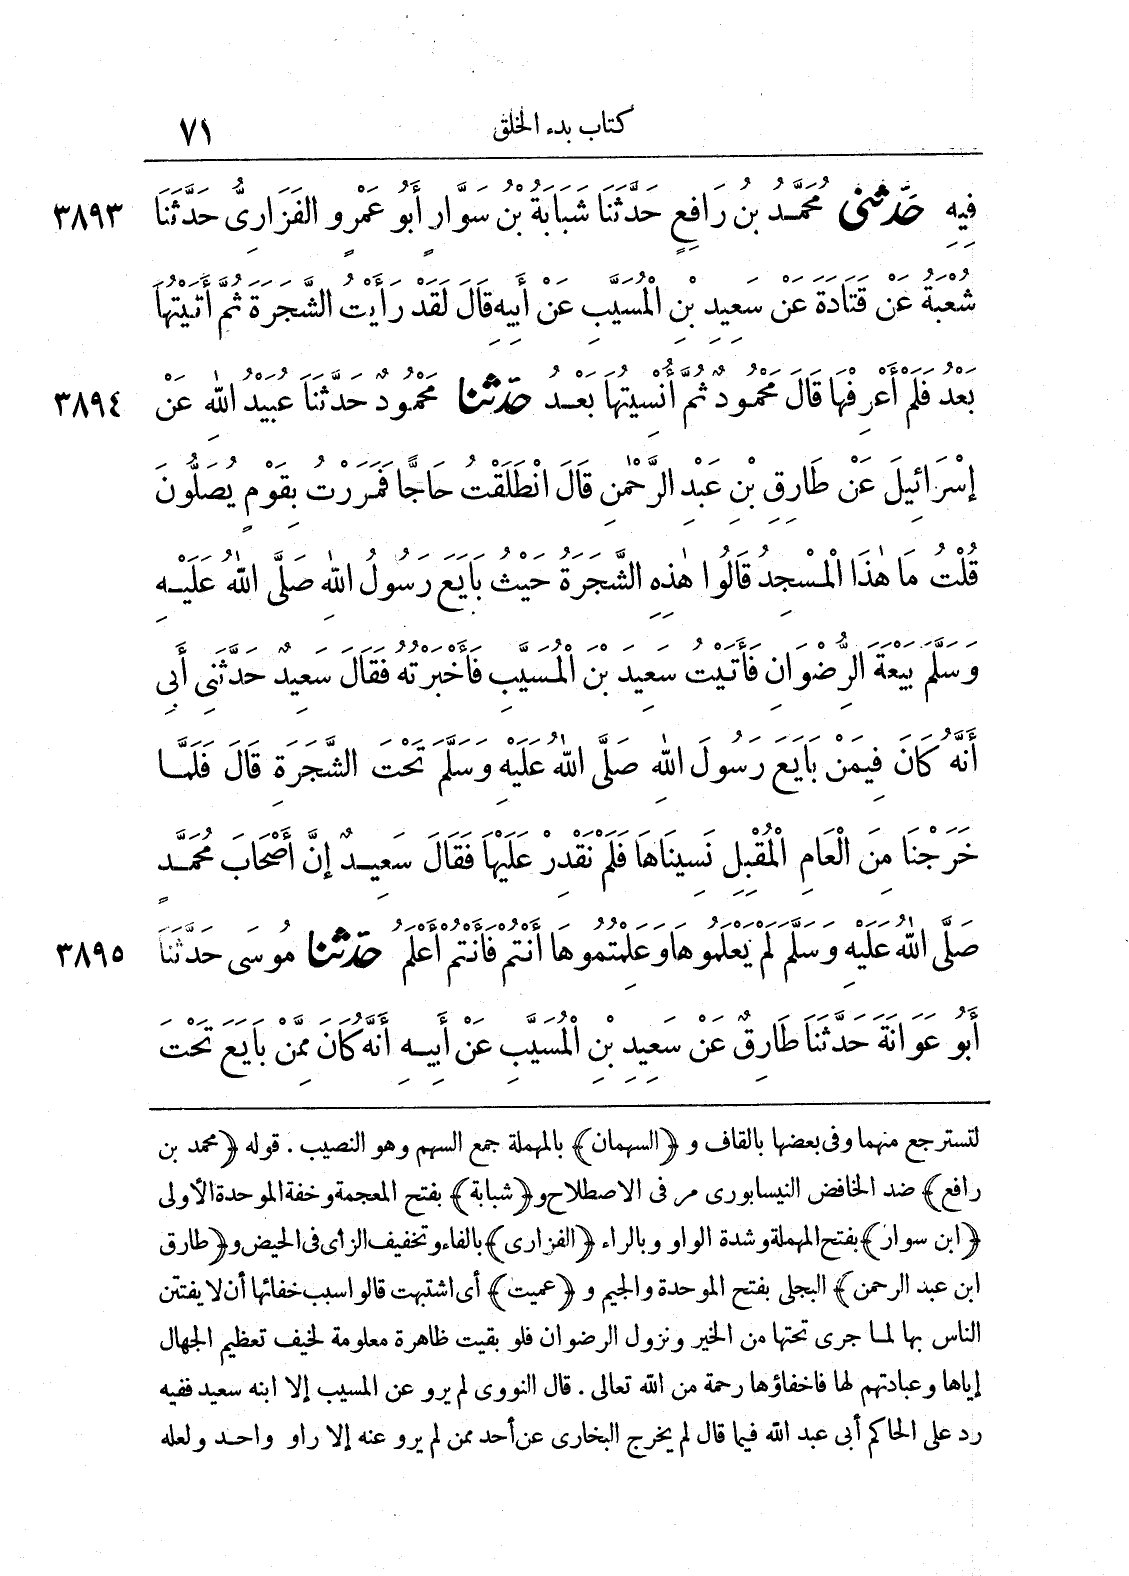 كتاب بدء الخلق ٧١
فِيهِ حَدَّثَنِي مُحَمَّدُ بْنُ رَافِعٍ حَدَّثَنَا شَبَابَةُ بْنُ سَوَّارٍ أَبُو عَمْرٍو الفَزَارِيُّ حَدَّثَنَا ٣٨٩٣
شُعْبَةُ عَنْ قَتَادَةَ عَنْ سَعِيدِ بْنِ الْمُسَيَّبِ عَنْ أَبِيهِ قَالَ لَقَدْ رَأَيْتُ الشَّجَرَةَ ثُمَّ أَتَيْتُهَا
بَعْدُ فَلَمْ أَعْرِفْهَا قَالَ مَحْمُودٌ ثُمَّ أُنْسِيتُهَا بَعْدُ حَدَّثَنَا مَحْمُودٌ حَدَّثَنَا عُبَيْدُ اللهِ عَنْ ٣٨٩٤
إِسْرَائِيلَ عَنْ طَارِقِ بْنِ عَبْدِ الرَّحْمٰنِ قَالَ انْطَلَقْتُ حَاجًّا فَمَرَرْتُ بِقَوْمٍ يُصَلُّونَ
قُلْتُ مَا هٰذَا الْمَسْجِدُ قَالُوا هٰذِهِ الشَّجَرَةُ حَيْثُ بَايَعَ رَسُولُ اللهِ صَلَّى اللهُ عَلَيْهِ
وَسَلَّمَ بَيْعَةَ الرِّضْوَانِ فَأَتَيْتُ سَعِيدَ بْنَ الْمُسَيَّبِ فَأَخْبَرْتُهُ فَقَالَ سَعِيدٌ حَدَّثَنِي أَبِي
أَنَّهُ كَانَ فِيمَنْ بَايَعَ رَسُولَ اللهِ صَلَّى اللهُ عَلَيْهِ وَسَلَّمَ تَحْتَ الشَّجَرَةِ قَالَ فَلَمَّا
خَرَجْنَا مِنَ الْعَامِ الْمُقْبِلِ نَسِينَاهَا فَلَمْ نَقْدِرْ عَلَيْهَا فَقَالَ سَعِيدٌ إِنَّ أَصْحَابَ مُحَمَّدٍ
صَلَّى اللهُ عَلَيْهِ وَسَلَّمَ لَمْ يَعْلَمُوهَا وَعَلِمْتُمُوهَا أَنْتُمْ فَأَنْتُمْ أَعْلَمُ حَدَّثَنَا مُوسَى حَدَّثَنَا ٣٨٩٥
أَبُو عَوَانَةَ حَدَّثَنَا طَارِقٌ عَنْ سَعِيدِ بْنِ الْمُسَيَّبِ عَنْ أَبِيهِ أَنَّهُ كَانَ مِمَّنْ بَايَعَ تَحْتَ
لتسترجع منهما وفى بعضها بالقاف و ﴿السهمان﴾ بالمهملة جمع السهم وهو النصيب . قوله ﴿محمد بن
رافع﴾ ضد الخافض النيسابورى مر فى الاصطلاح و﴿شبابة﴾ بفتح المعجمة وخفة الموحدة الأولى
﴿ابن سوار﴾ بفتح المهملة وشدة الواو وبالراء ﴿الفزارى﴾ بالفاء وتخفيف الزاى فى الحيض و﴿طارق
ابن عبد الرحمن﴾ البجلى بفتح الموحدة والجيم و ﴿عميت﴾ أى اشتبهت قالوا سبب خفائها أن لا يفتتن
الناس بها لما جرى تحتها من الخير ونزول الرضوان فلو بقيت ظاهرة معلومة لخيف تعظيم الجهال
إياها وعبادتهم لها فاخفاؤها رحمة من الله تعالى . قال النووى لم يرو عن المسيب إلا ابنه سعيد ففيه
رد على الحاكم أبى عبد الله فيما قال لم يخرج البخارى عن أحد ممن لم يرو عنه إلا راو واحد ولعله